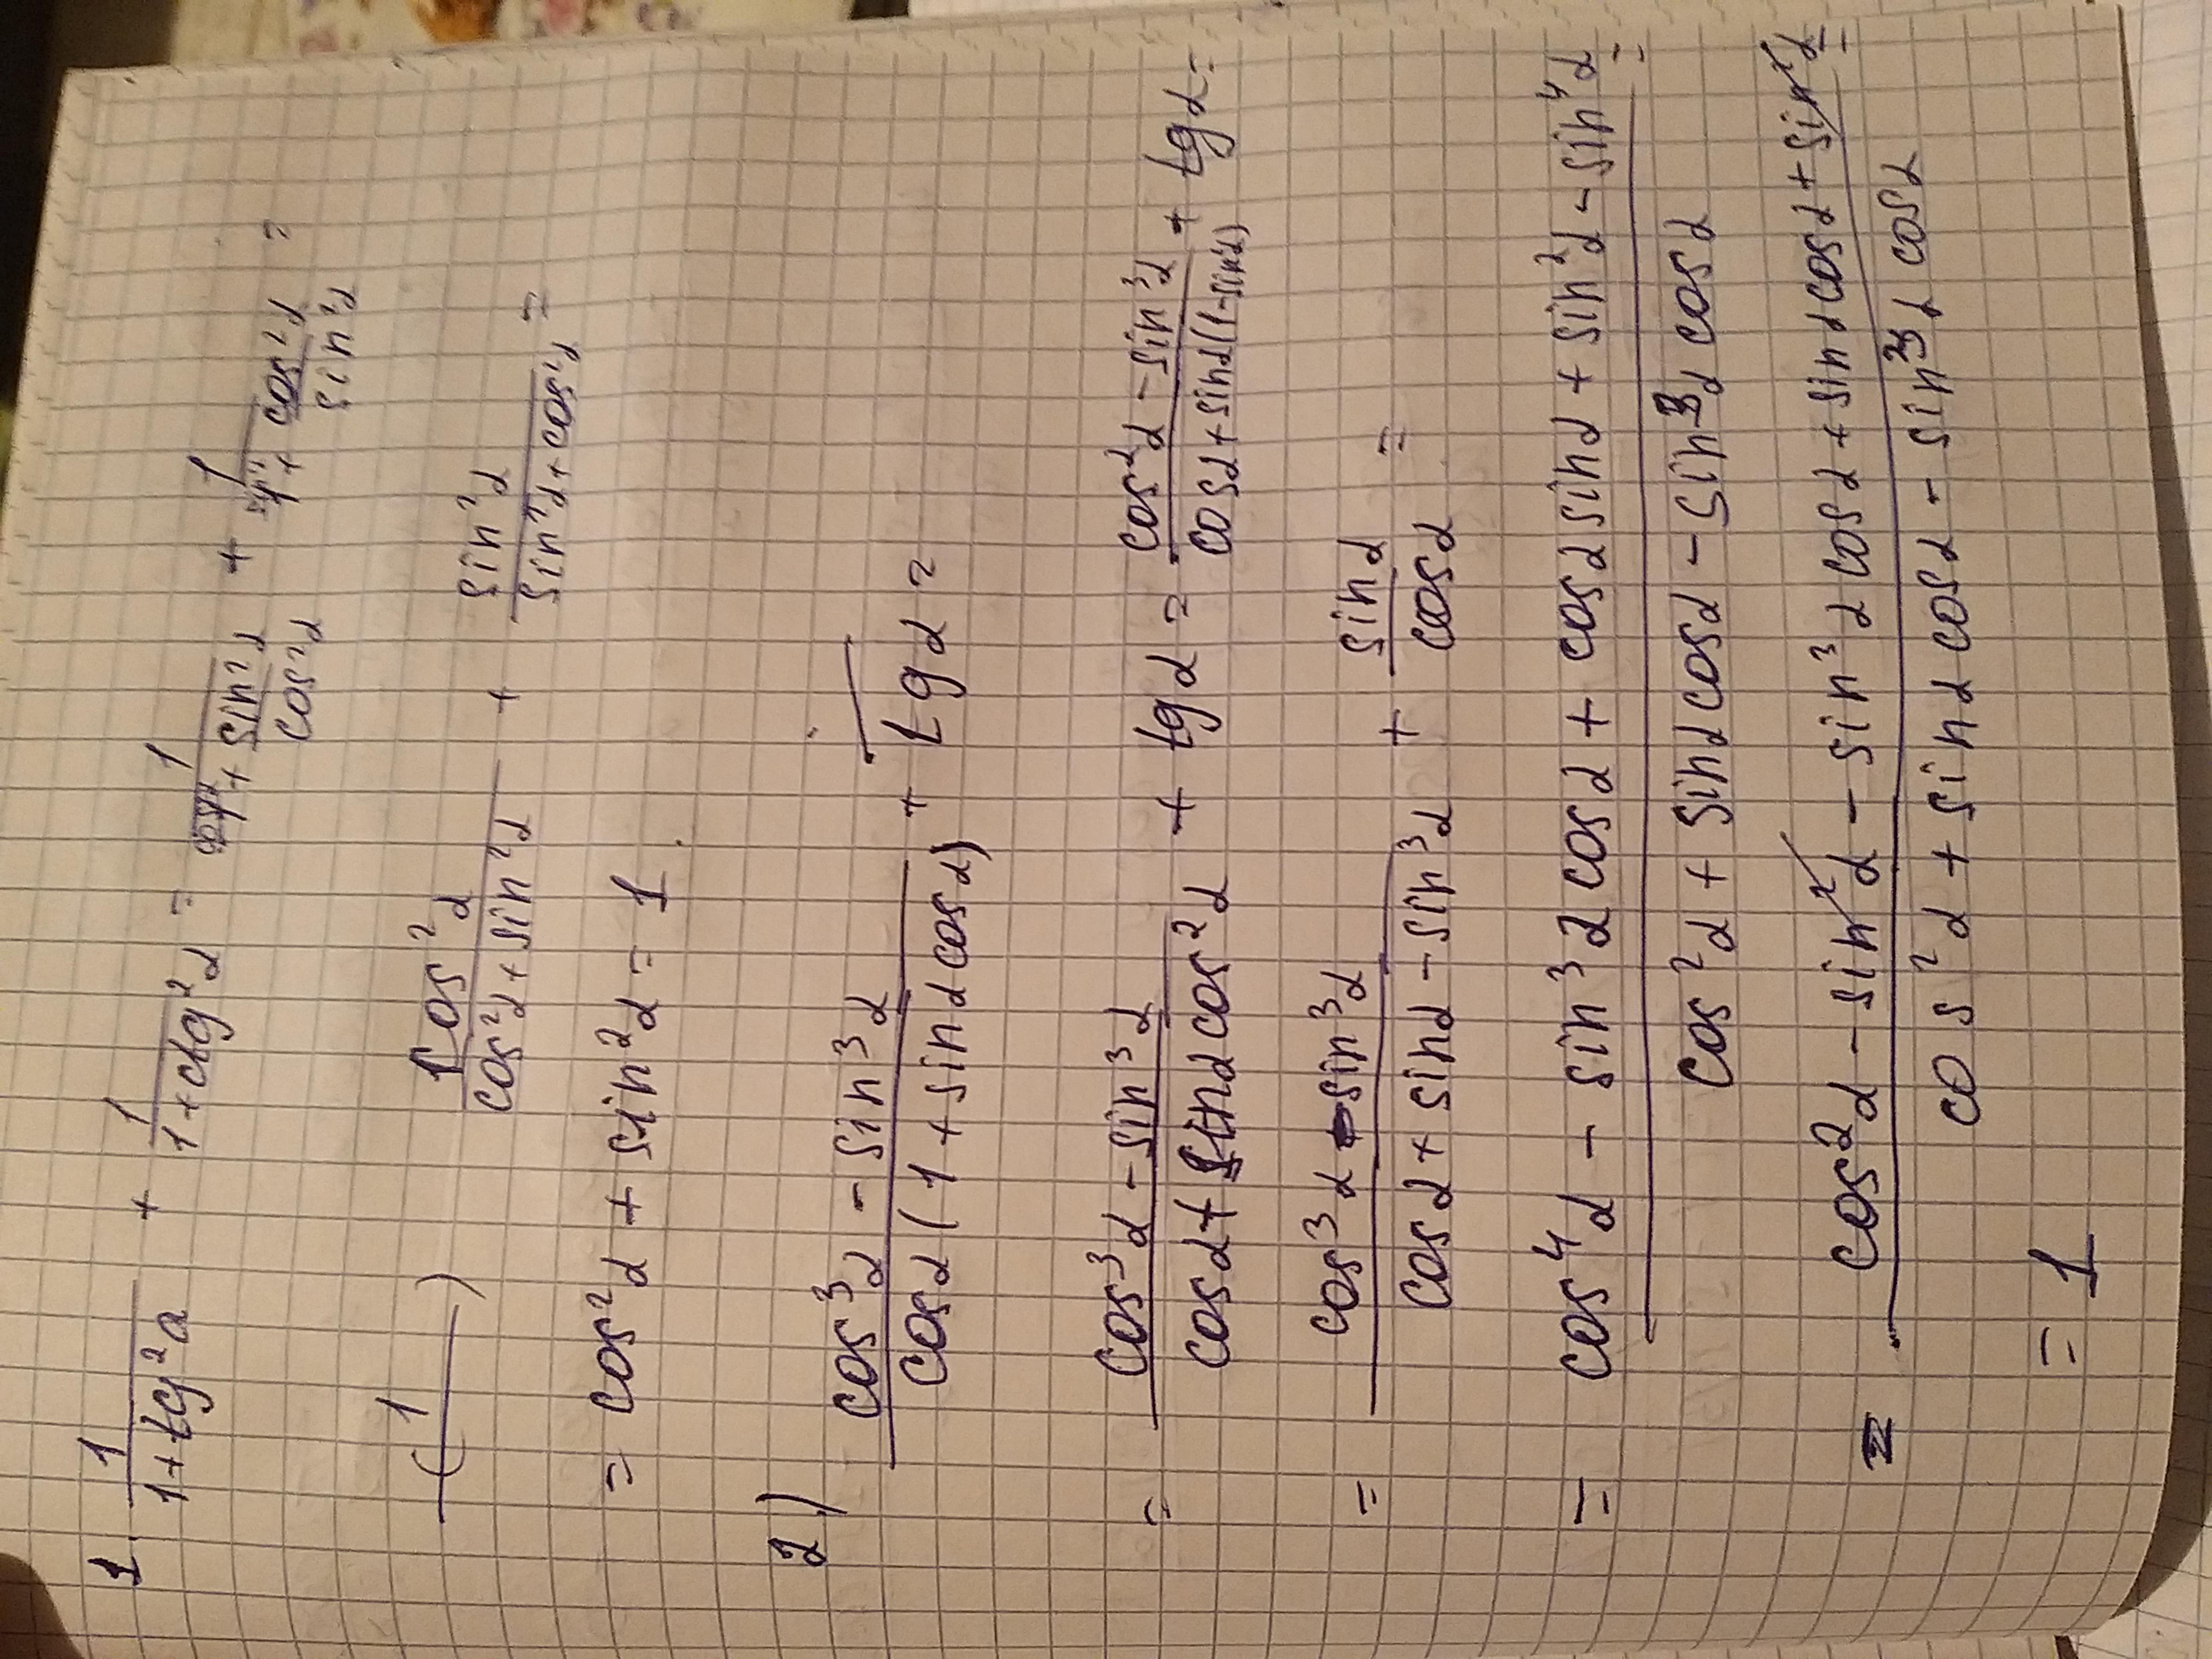 1. 1/(1+tg²α) + 1/(1+ctg²α) = 1/(1 + sin²α/cos²α) + 1/(1 + cos²α/sin²α) =
(1/ ) cos²α/(cos²α+sin²α) + sin²α/(sin²α+cos²α) =
= cos²α + sin²α = 1
2) (cos³α - sin³α)/(cosα(1+sinαcosα)) + tgα =
= (cos³α - sin³α)/(cosα + sinαcos²α) + tgα = (cos³α - sin³α)/(cosα + sinα(1-sin²α)) + tgα =
= (cos³α - sin³α)/(cosα + sinα - sin³α) + sinα/cosα =
= (cos⁴α - sin³αcosα + cosαsinα + sin²α - sin⁴α)/(cos²α + sinαcosα - sin³αcosα) =
= (cos²α - sin²α - sin³αcosα + sinαcosα + sin²α)/(cos²α + sinαcosα - sin³αcosα) =
= 1